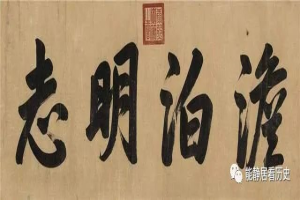 澹泊明志
能静居看历史